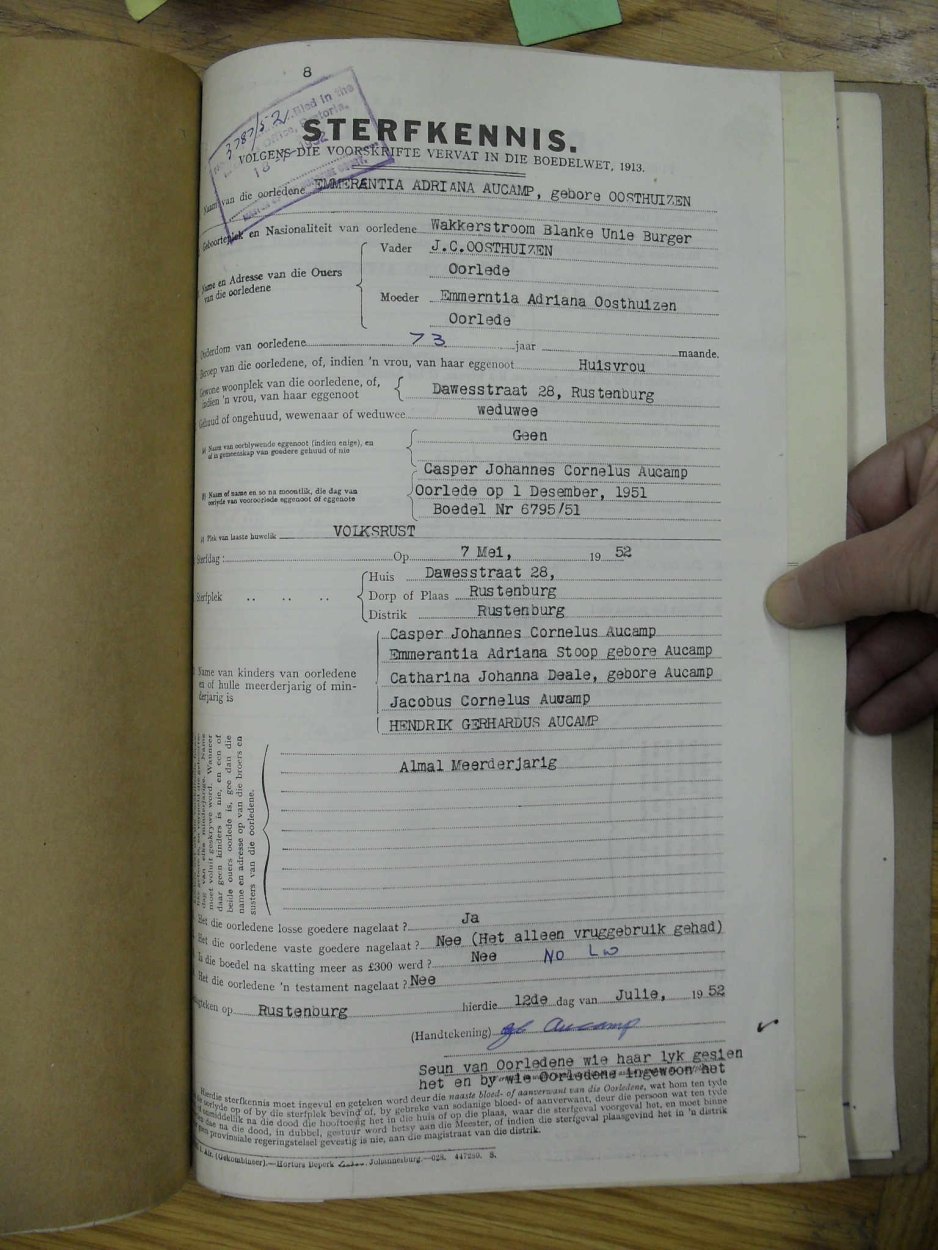 8
3787/52
Filed in the
Office, Pretoria.
STERFKENNIS.
VOLGENS DIE VOORSKRIFTE VERVAT IN DIE BOEDELWET, 1913.
Naam van die oorledene EMMERANTIA ADRIANA AUCAMP, gebore OOSTHUIZEN
Geboorteplek en Nasionaliteit van oorledene Wakkerstroom Blanke Unie Burger
Name en Adresse van die Ouers van die oorledene
Vader J.C.OOSTHUIZEN
Oorlede
Moeder Emmerntia Adriana Oosthuizen
Oorlede
Ouderdom van oorledene 73 jaar maande.
Beroep van die oorledene, of, indien 'n vrou, van haar eggenoot Huisvrou
Gewone woonplek van die oorledene, of,
indien 'n vrou, van haar eggenoot Dawesstraat 28, Rustenburg
Gehuud of ongehuud, wewenaar of weduwee weduwee
a) Naam van oorblywende eggenoot (indien enige), en
of in gemeenskap van goedere gehuud of nie Geen
Casper Johannes Cornelus Aucamp
b) Naam of name en so na moontlik, die dag van
oorlyde van vooroorlede eggenoot of eggenote Oorlede op 1 Desember, 1951
Boedel Nr 6795/51
c) Plek van laaste huwelik VOLKSRUST
Sterfdag: Op 7 Mei, 19 52
Sterfplek .. .. ..
Huis Dawesstraat 28,
Dorp of Plaas Rustenburg
Distrik Rustenburg
Name van kinders van oorledene
en of hulle meerderjarig of min-
derjarig is
Casper Johannes Cornelus Aucamp
Emmerantia Adriana Stoop gebore Aucamp
Catharina Johanna Deale, gebore Aucamp
Jacobus Cornelus Aucamp
HENDRIK GERHARDUS AUCAMP
moet voluit geskrywe word. Wanneer
daar geen kinders is nie, en een of
beide ouers oorlede is, gee dan die
name en adresse op van die broers en
susters van die oorledene.
Almal Meerderjarig
Het die oorledene losse goedere nagelaat? Ja
Het die oorledene vaste goedere nagelaat? Nee (Het alleen vruggebruik gehad)
Is die boedel na skatting meer as £300 werd? Nee NO LW
Het die oorledene 'n testament nagelaat? Nee
Geteken op Rustenburg hierdie 12de dag van Julie, 19 52
(Handtekening) Aucamp
Seun van Oorledene wie haar lyk gesien
het en by wie Oorledene ingewoon het
Hierdie sterfkennis moet ingevul en geteken word deur die naaste bloed- of aanverwant van die Oorledene, wat hom ten tyde
oorlyde op of by die sterfplek bevind of, by gebreke van sodanige bloed- of aanverwant, deur die persoon wat ten tyde
onmiddellik na die dood die hooftoesig het in die huis of op die plaas, waar die sterfgeval voorgeval het, en moet binne
dae na die dood, in dubbel, gestuur word hetsy aan die Meester, of indien die sterfgeval plaasgevind het in 'n distrik
geen provinsiale regeringstelsel gevestig is nie, aan die magistraat van die distrik.
(Gekombineer).—Hortors Beperk Johannesburg—028. 447250. S.